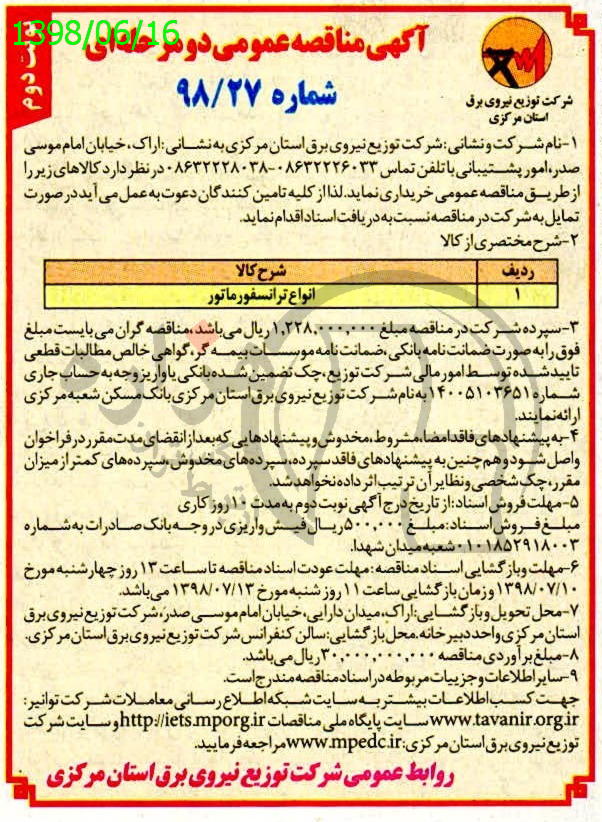 1398/06/16
نوبت دوم
آگهی مناقصه عمومی دو مرحله ای
شماره ۹۸/۲۷
شرکت توزیع نیروی برق
استان مرکزی
۱-نام شرکت و نشانی: شرکت توزیع نیروی برق استان مرکزی به نشانی: اراک، خیابان امام موسی
صدر، امور پشتیبانی با تلفن تماس ۰۸۶۳۲۲۲۶۰۳۳-۰۸۶۳۲۲۲۸۰۳۸ در نظر دارد کالاهای زیر را
از طریق مناقصه عمومی خریداری نماید. لذا از کلیه تامین کنندگان دعوت به عمل می آید در صورت
تمایل به شرکت در مناقصه نسبت به دریافت اسناد اقدام نماید.
۲-شرح مختصری از کالا
ردیف شرح کالا
۱ انواع ترانسفورماتور
۳-سپرده شرکت در مناقصه مبلغ ۱,۲۲۸,۰۰۰,۰۰۰ ریال می باشد، مناقصه گران می بایست مبلغ
فوق را به صورت ضمانت نامه بانکی، ضمانت نامه موسسات بیمه گر، گواهی خالص مطالبات قطعی
تایید شده توسط امور مالی شرکت توزیع، چک تضمین شده بانکی یا واریز وجه به حساب جاری
شماره ۱۴۰۰۵۱۰۳۶۵۱ به نام شرکت توزیع نیروی برق استان مرکزی بانک مسکن شعبه مرکزی
ارائه نمایند.
۴-به پیشنهادهای فاقد امضا، مشروط، مخدوش و پیشنهادهایی که بعد از انقضای مدت مقرر در فراخوان
واصل شود و هم چنین به پیشنهادهای فاقد سپرده، سپرده های مخدوش، سپرده های کمتر از میزان
مقرر، چک شخصی و نظایر آن ترتیب اثر داده نخواهد شد.
۵-مهلت فروش اسناد: از تاریخ درج آگهی نوبت دوم به مدت ۱۰ روز کاری
مبلغ فروش اسناد: مبلغ ۵۰۰,۰۰۰ ریال فیش واریزی در وجه بانک صادرات به شماره
۰۱۰۱۸۵۲۹۱۸۰۰۳ شعبه میدان شهدا.
۶-مهلت و بازگشایی اسناد مناقصه: مهلت عودت اسناد مناقصه تا ساعت ۱۳ روز چهارشنبه مورخ
۱۳۹۸/۰۷/۱۰ و زمان بازگشایی ساعت ۱۱ روز شنبه مورخ ۱۳۹۸/۰۷/۱۳ می باشد.
۷-محل تحویل و بازگشایی: اراک، میدان دارایی، خیابان امام موسی صدر، شرکت توزیع نیروی برق
استان مرکزی واحد دبیرخانه. محل بازگشایی: سالن کنفرانس شرکت توزیع نیروی برق استان مرکزی.
۸-مبلغ برآوردی مناقصه ۳۰,۰۰۰,۰۰۰,۰۰۰ ریال می باشد.
۹-سایر اطلاعات و جزییات مربوطه در اسناد مناقصه مندرج است.
جهت کسب اطلاعات بیشتر به سایت شبکه اطلاع رسانی معاملات شرکت توانیر:
www.tavanir.org.ir سایت پایگاه ملی مناقصات http://iets.mporg.ir و سایت شرکت
توزیع نیروی برق استان مرکزی: www.mpedc.ir مراجعه فرمایید.
روابط عمومی شرکت توزیع نیروی برق استان مرکزی